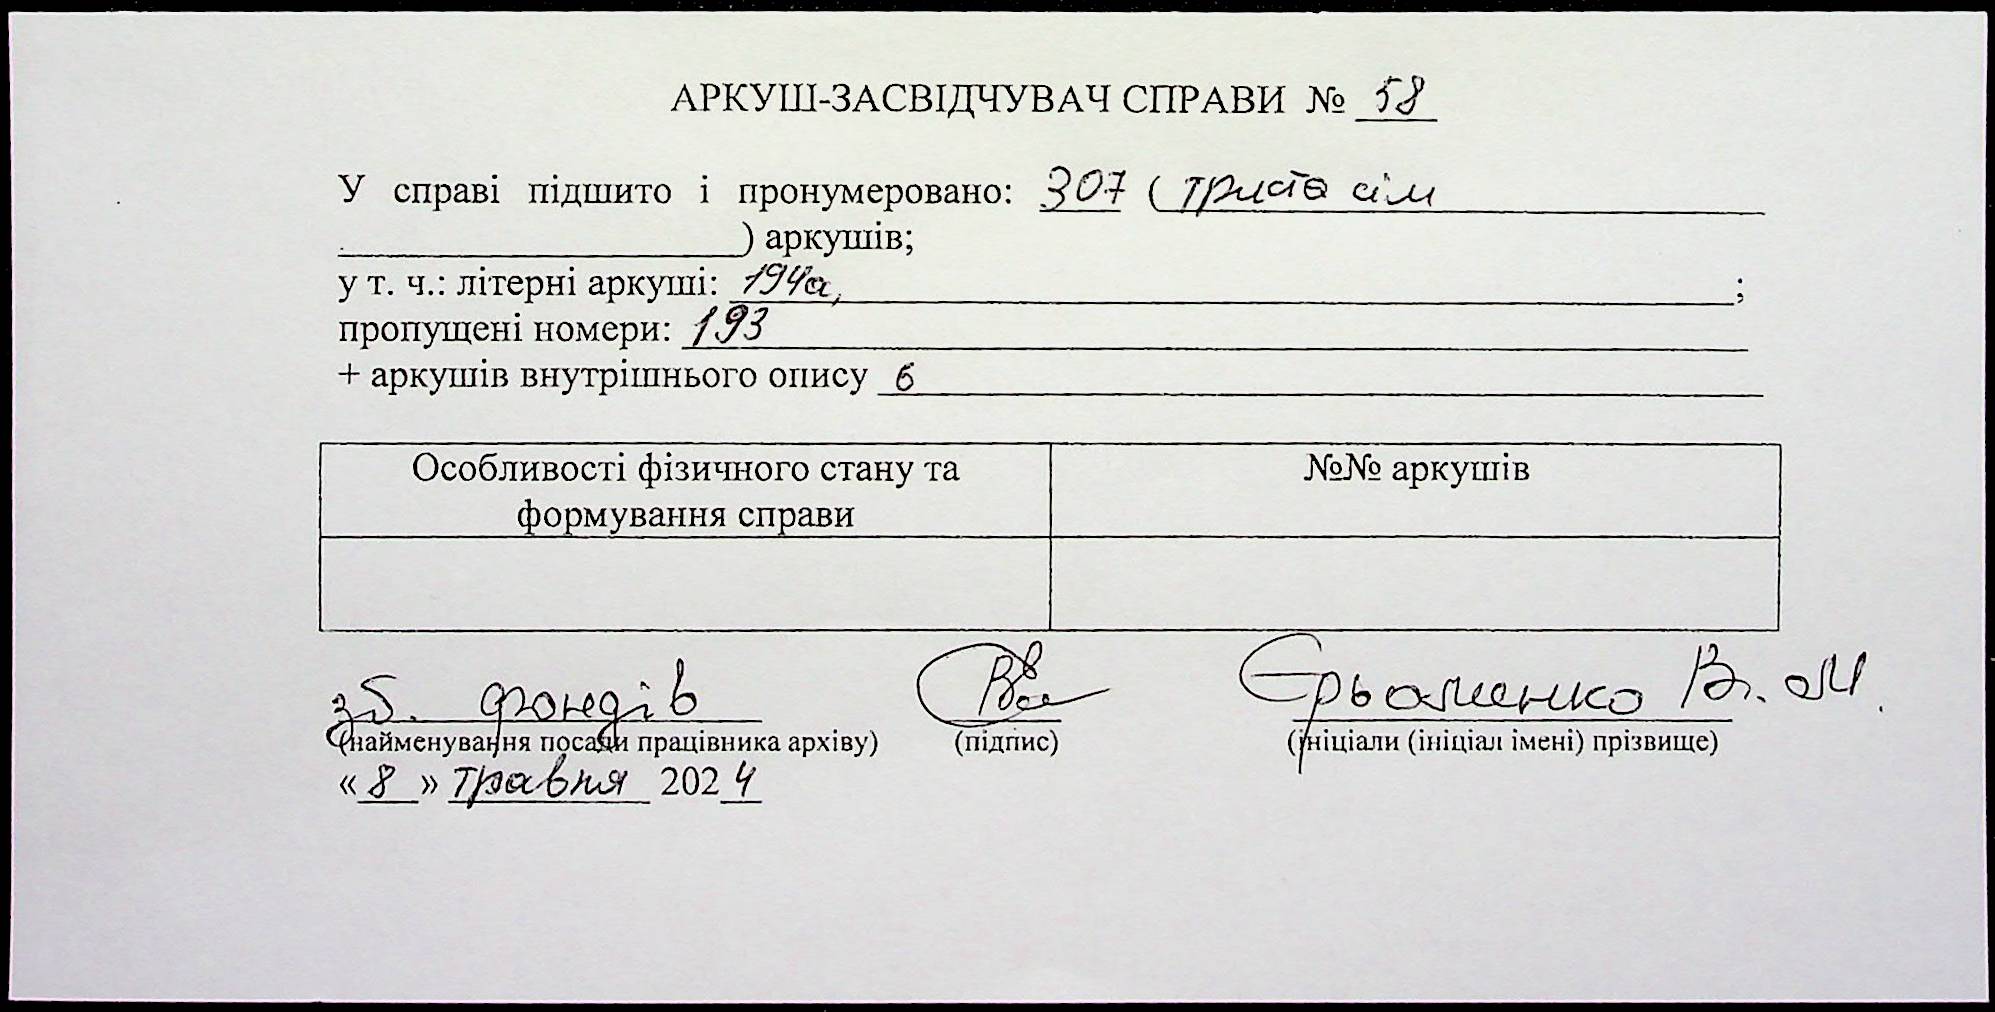 АРКУШ-ЗАСВІДЧУВАЧ СПРАВИ № 58
У справі підшито і пронумеровано: 307 ( триста сім
) аркушів;
у т. ч.: літерні аркуші: 194а, ;
пропущені номери: 193
+ аркушів внутрішнього опису 6
Особливості фізичного стану та формування справи
№№ аркушів
зб. фондів
Єрьоменко В. М.
(найменування посади працівника архіву) (підпис) (ініціали (ініціал імені) прізвище)
« 8 » травня 2024